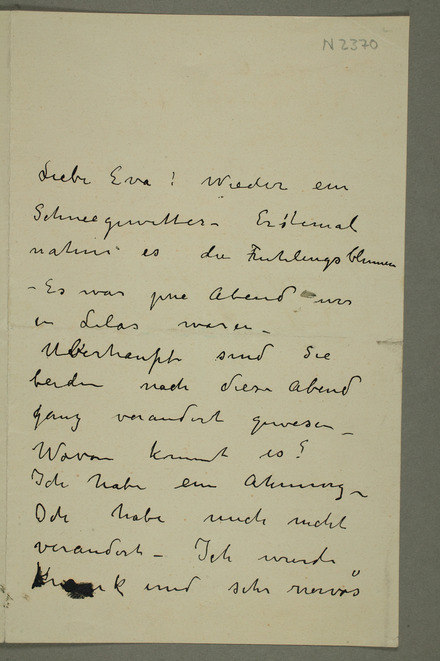 N 2370
Liebe Eva! Wieder ein
Schneegewitter – Erstemal
nahm es die Fruhlingsblumen
– Es war jene Abend wir
in Lilas waren –
Uberhaupt sind Sie
beiden nach diese Abend
ganz verandert gewesen –
Wovon kommt es?
Ich habe ein Ahnung –
Ich habe mich nicht
verandert – Ich wurde
krank und sehr nervös